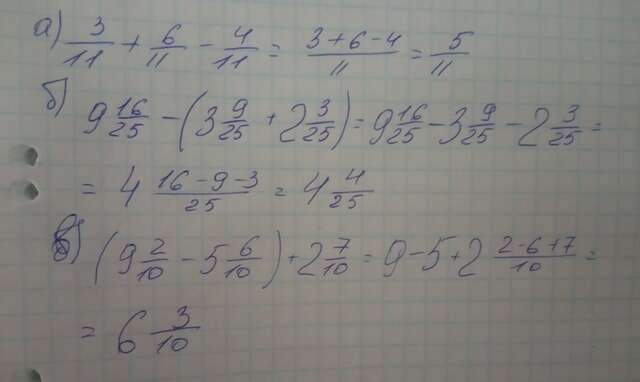 а) 3/11 + 6/11 - 4/11 = (3+6-4)/11 = 5/11
б) 9 16/25 - (3 9/25 + 2 3/25) = 9 16/25 - 3 9/25 - 2 3/25 =
= 4 (16-9-3)/25 = 4 4/25
в) (9 2/10 - 5 6/10) + 2 7/10 = 9-5+2 (2-6+7)/10 =
= 6 3/10